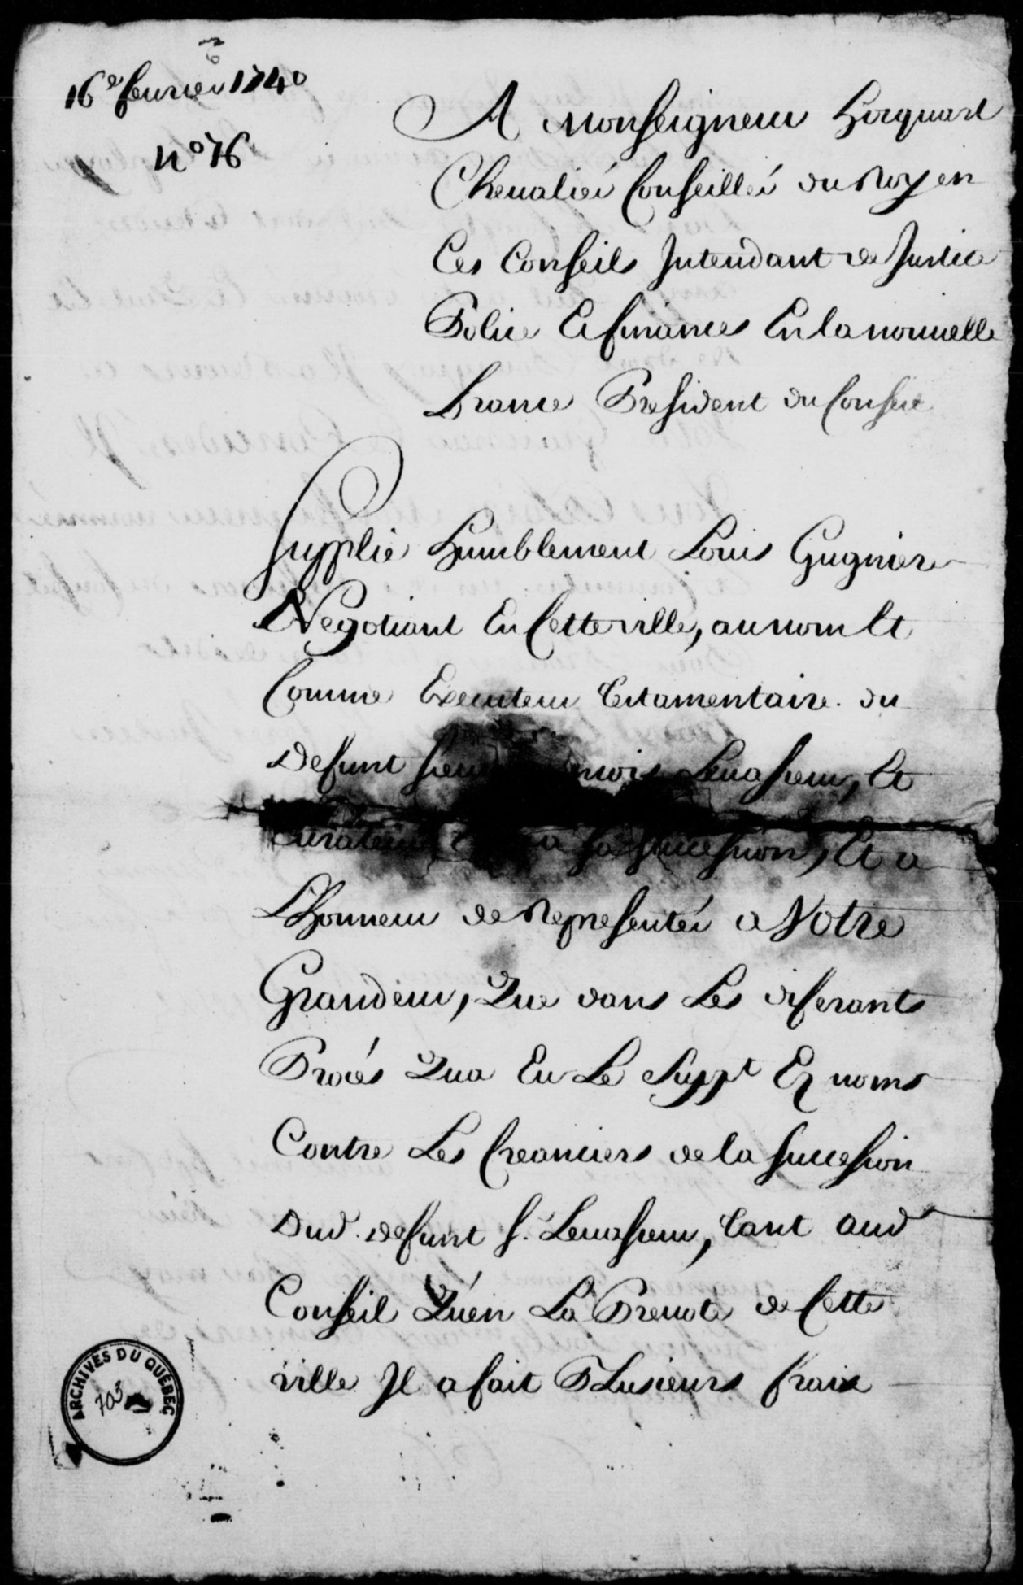 16e fevrier 1740
n° 76
A Monseigneur Hocquart
Chevalié Conseillé du Roy en
Ces Conseils Intendant de Justice
Police Et finances En la nouvelle
France President du Conseil
Supplie humblement Louis Gugnière
Negotiant En Cette ville, au nom Et
Comme Executeur testamentaire du
Defunt Levasseur, Et
Curateur a sa succession, Et a
L'honneur de Representér a Votre
Grandeur, Que dans Les diferants
Procés Qua Eu Le Suppt Ez noms
Contre Les Creanciers de la succession
Dud. defunt s. Levasseur, tant aud
Conseil Qu'én La Prevoté de Cette
ville Jl a fait Plusieurs frais
ARCHIVES DU QUÉBEC
705